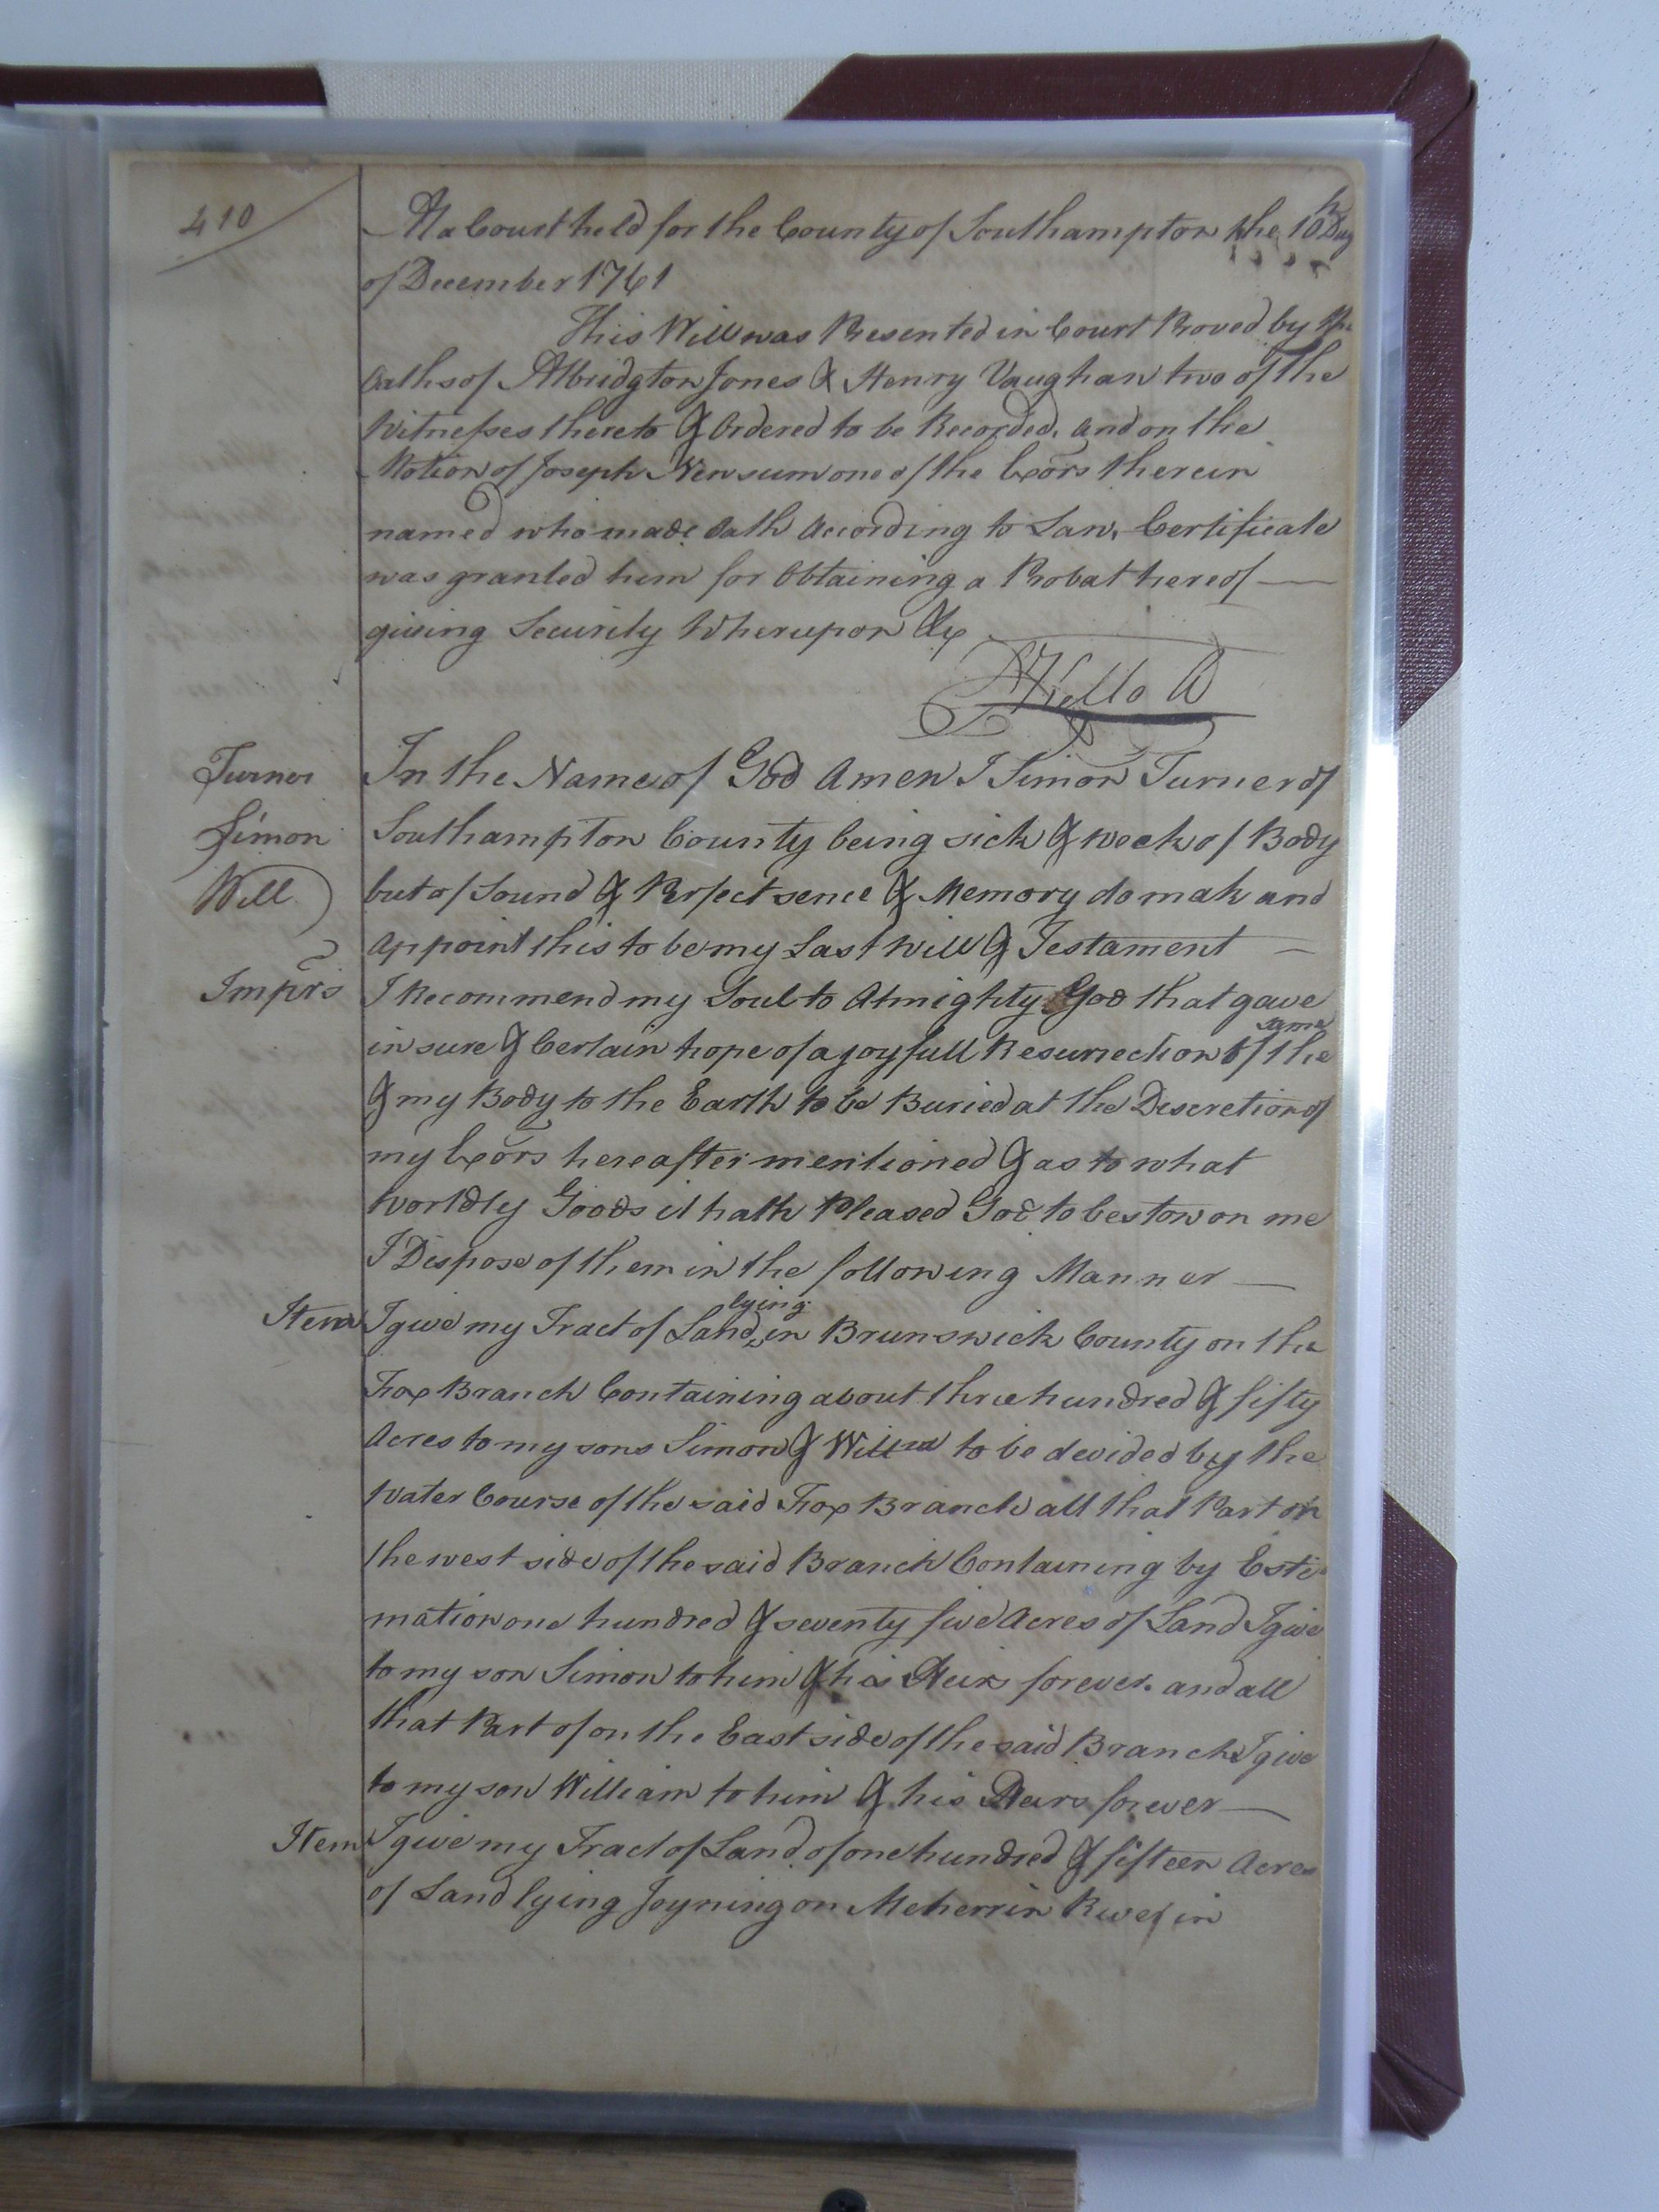 410
At a Court held for the County of Southampton the 10th Day
of December 1761
This Will was Presented in Court Proved by the
Oaths of Albridgton Jones & Henry Vaughan two of the
Witnesses thereto & Ordered to be Recorded, and on the
Motion of Joseph Newsum one of the Exors therein
named who made Oath According to Law, Certificate
was granted him for Obtaining a Probat hereof
giving Security Wherupon &c
Turner
Simon
Will
In the Name of God Amen I Simon Turner of
Southampton County being sick & week of Body
but of Sound & Perfect sence & Memory do mak and
Appoint this to be my Last Will & Testament
Imprs I Recommend my Soul to Almighty God that gave
in sure & Certain hope of a joyfull Resurrection of the same
& my Body to the Earth to be Buried at the Discretion of
my Exors hereafter mentioned & as to what
Worldly Goods it hath Pleased God to bestow on me
I Dispose of them in the following Manner
Item I give my Tract of Land lying in Brunswick County on the
Fox Branch Containing about three hundred & fifty
Acres to my sons Simon & Willm to be devided by the
Water Course of the said Fox Branch all that Part on
the west side of the said Branch Containing by Esti
mation one hundred & seventy five Acres of Land I give
to my son Simon to him & his Heirs forever. and all
that Part of on the East side of the said Branch I give
to my son William to him & his Heirs forever
Item I give my Tract of Land of one hundred & fifteen Acres
of Land lying Joyning on Meherrin River in